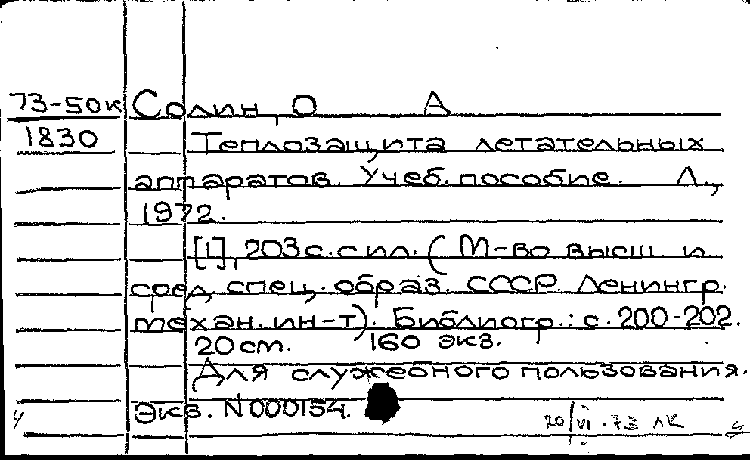 73-50к Солин, О А
1830 Теплозащита летательных
аппаратов. Учеб. пособие. Л.,
1972.
[1], 203 с. с ил. (М-во высш и
сред. спец. образ. СССР Ленингр.
механ. ин-т). Библиогр.: с. 200-202.
20 см. 160 экз.
Для служебного пользования.
Экз. N000154.
20/VI.73 ЛК